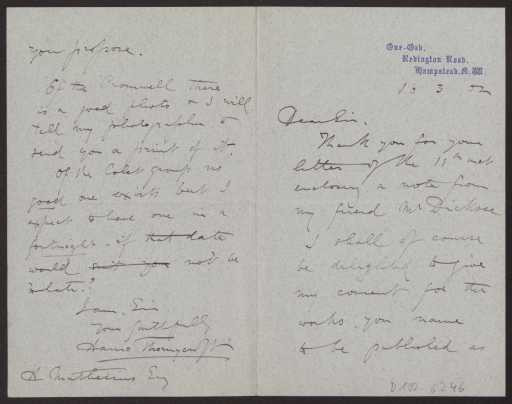 One-Oak,
Redington Road,
Hampstead, N.W.
Dear Sir.
Thank you for your
letter of the 11th inst
enclosing a note from
my friend Mr Dicksee
I shall of course
be delighted to give
my consent for the
works you name
to be published as
you propose.
Of the Cromwell there
is a good photo & I will
tell my photographer to
send you a print of it.
Of the Colet group no
good one exists but I
expect to have one in a
fortnight. if that date
would suit you not be
too late?
I am, Sir
Yours faithfully
Hamo Thornycroft